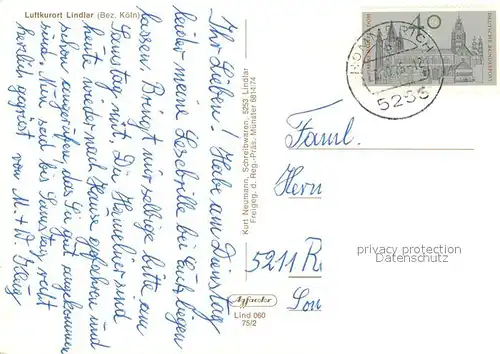 Luftkurort Lindlar (Bez. Köln)
Ihr Lieben! Habe am Dienstag
leider meine Lesebrille bei Euch liegen
lassen. Bringt mir selbige bitte am
Samstag mit. Die Hamelner sind
heute wieder nach Hause gefahren und
schon angerufen, das Sie gut angekommen
sind. Nun seid bis Samstag recht
herzlich gegrüst von M + W
Kurt Neumann, Schreibwaren, 5253 Lindlar
Freigeg. d. Reg.-Präs. Münster 6814/74
Lind 060
75/2
40
Faml.
Herrn
5211 R
privacy protection
Datenschutz